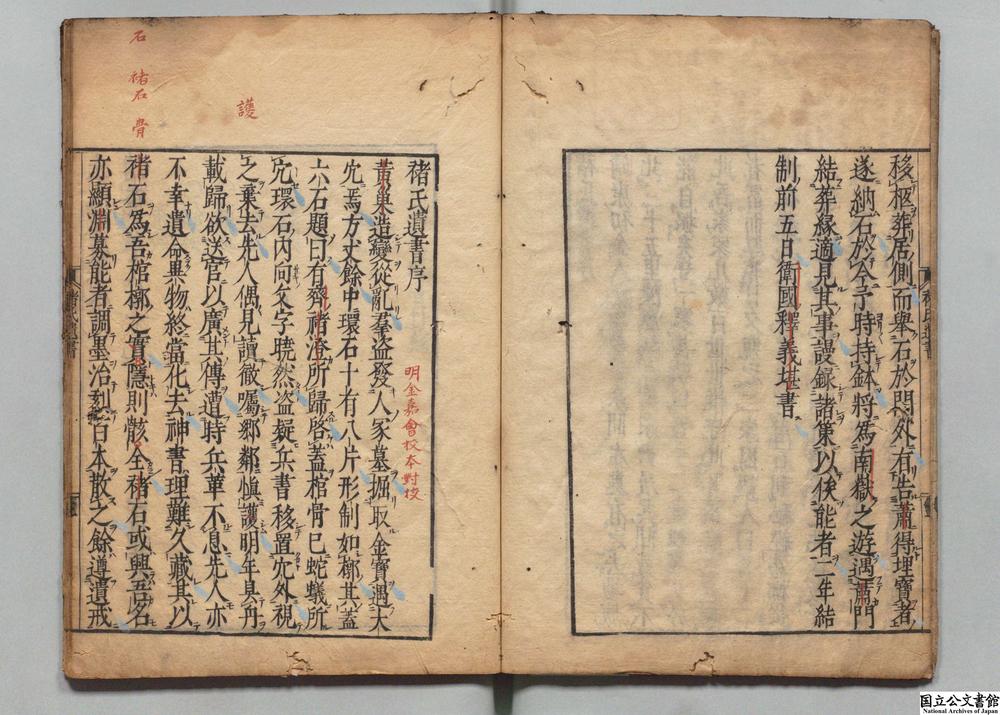 移柩葬居側而舉石於門外有告蕭得埋寶者
遂納石於令予時持鉢將為南嶽之遊遇蕭門
結葬緣適見其事謾錄諸策以俟能者二年結
制前五日衛國釋義堪書
褚氏遺書序
明金嘉會校本對挍
黃巢造變從亂羣盜發人冢墓掘取金寶遇大
穴焉方丈餘中環石十有八片形制如槨其蓋
六石題曰有齊褚澄所歸啓蓋棺骨已蛇蟻所
穴環石內向文字曉然盜疑兵書移置穴外視
之棄去先人偶見讀徹囑鄉鄰慎護明年具舟
載歸欲送官以廣其傳遭時兵革不息先人亦
不幸遺命異物終當化去神書理難久藏其以
褚石為吾棺槨之實隱則骸全褚石或興吾名
亦顯淵募能者調墨治刻百本散之餘遵遺戒
護
骨
褚石
石
褚氏遺書
国立公文書館
National Archives of Japan